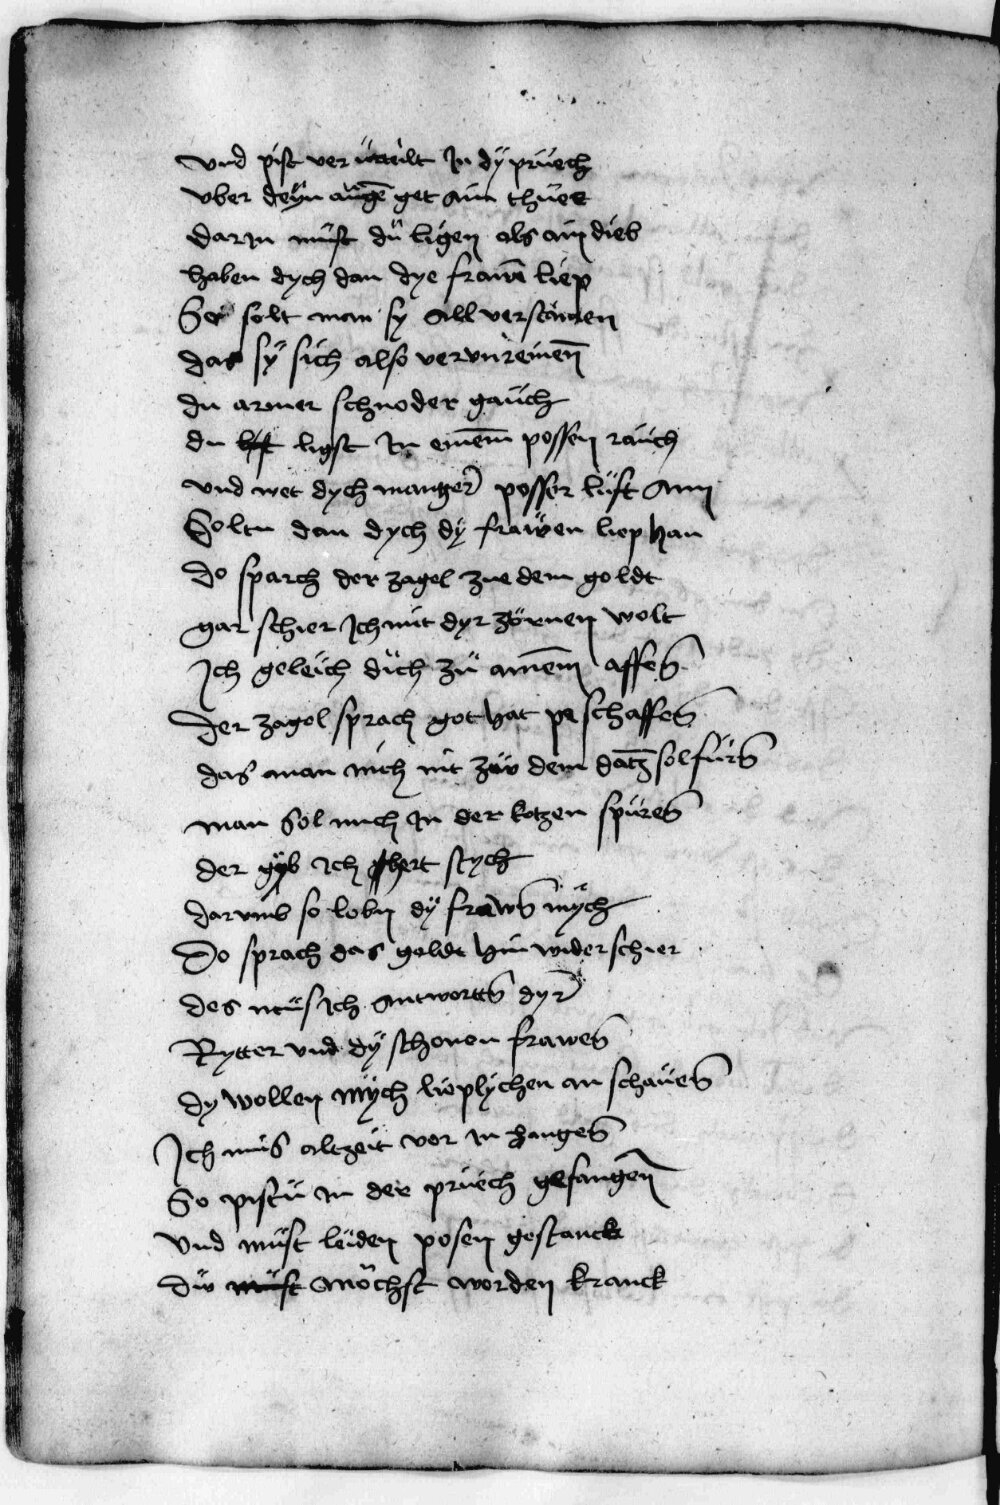 vnd pist ver vrteilt In dÿ prüech
vber deÿn augē get ain thüer
darin müst dü ligen als ain dieb
haben dych dan dye frawē liep
So solt man sy all verstainen
das sÿ sich also vervnreinenn̄
du armer schnoder gaüch
du ligst in einem̄ possen raüch
vnd wet dych manger possor lüft ann
Soltn dan dych dÿ fraẅen liep han
do sparch der zagel zue dem goldt
gar schier Ich mit dyr zörnen wolt
Ich geleich dich zü ainem̄ affen
Der zagol sprach got hat pe schaffen
das man mich nit zw dem datz sol fürn
man sol mich In der kotzen spüren
der gÿb ich hert stych
darumb so lobn dÿ frawn mÿch
Do sprach das goldt hin wider schier
des müs ich antwortten dyr
Rytter vnd dÿ schonen frawen
dy wollen mÿch lieplÿchen an schaüen
Ich müs altzeit vor in hangen
So pistü in der prüech gefangen
vnd müst leiden posen gestanck
dw möchst worden kranck